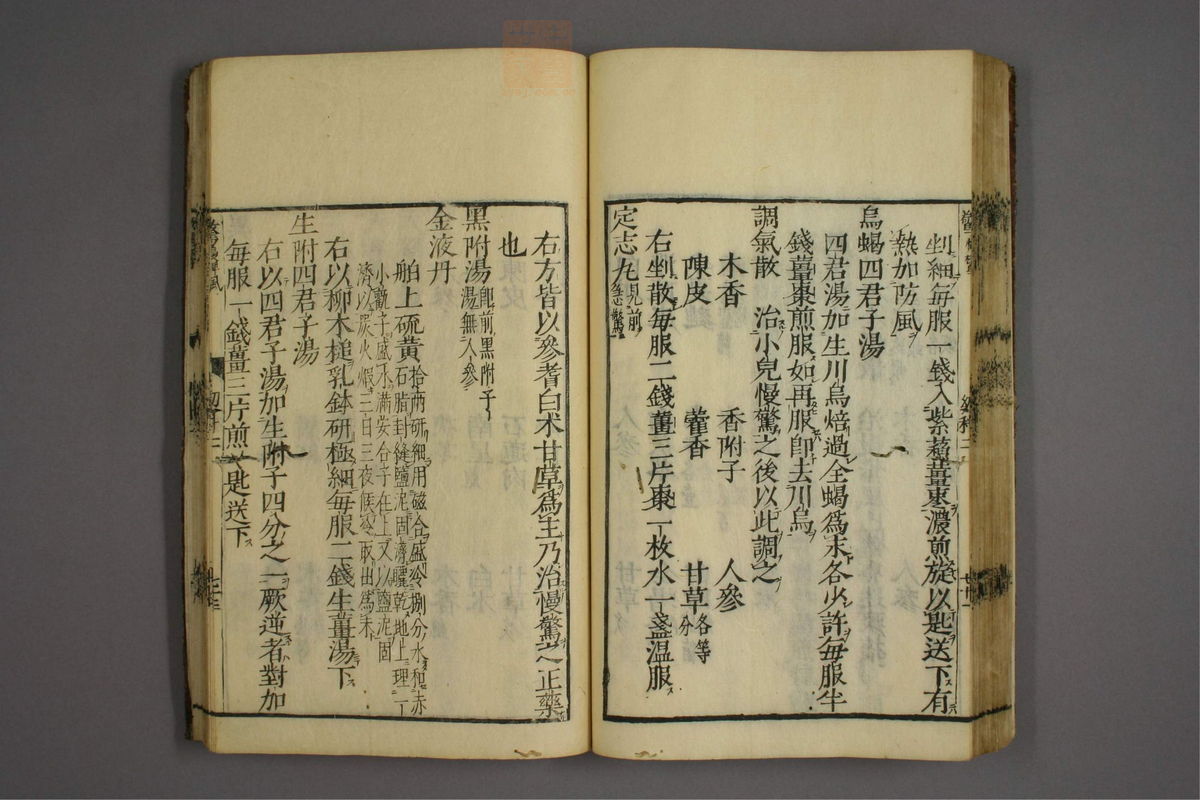 剉細每服一錢入紫蘓薑棗濃煎旋以匙送下有
熱加防風
烏蝎四君子湯
四君湯加生川烏焙過全蝎爲末各少許每服半
錢薑棗煎服如再服卽去川烏
調氣散 治小兒慢驚之後以此調之
木香 香附子 人參
陳皮 藿香 甘草各等分
右剉散每服二錢薑三片棗一枚水一盞温服
定志丸見前急驚
右方皆以參耆白术甘草爲主乃治慢驚之正藥
也
黑附湯卽前黑附子湯無人參
金液丹
舶上硫黄拾兩研細用磁合盛冷捌分水和赤石脂封縫鹽泥固濟曬乾地上埋一小
以鹽泥固濟以
火煆三日三夜候冷取出爲末
右以柳木槌乳鉢研極細每服二錢生薑湯下
生附四君子湯
右以四君子湯加生附子四分之一厥逆者對加
每服一錢薑三片煎以匙送下